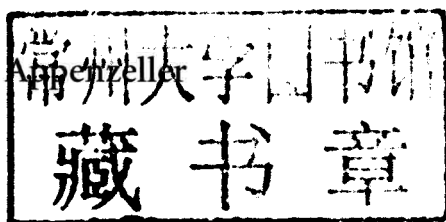 常州大学图书馆
Appenzeller
藏书章